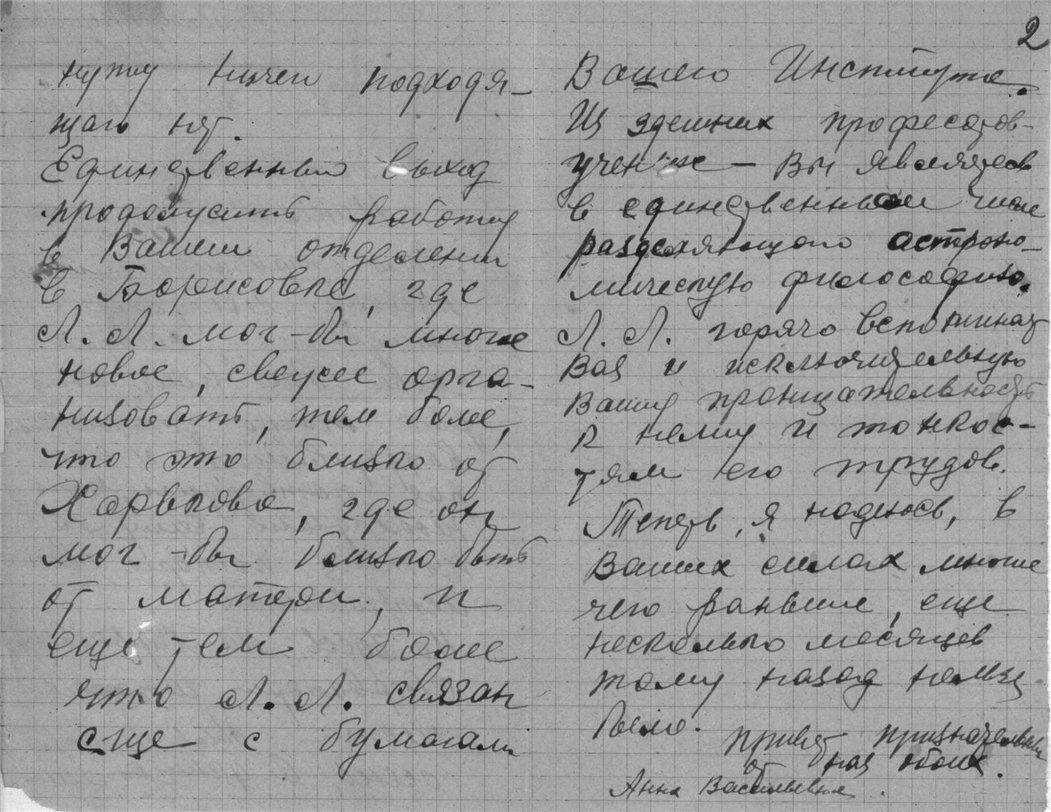 2
нуту ничего подходя-
щаго нет.
Единственный выход
продолжить работу
в Вашем отделении
в Борисовке, где
Л. Л. мог-бы многое
новое, свежее орга-
низовать, тем более,
что это близко от
Харькова, где он
мог-бы близко быть
от матери, и
еще тем более
что Л. Л. связан
еще с бумагами
Вашего Института.
Из здешних професоров-
ученых — Вы являетесь
в единственном числе
разделяющего астроно-
мическую философию.
Л. Л. горячо вспоминает
Вас и исключительную
Вашу проницательность
к нему и тонкос-
тям его трудов.
Теперь, я надеюсь, в
Ваших силах многое
чего раньше, еще
несколько месяцев
тому назад нельзя
было.
привет признательный
от нас обоих.
Анна Васильевна.